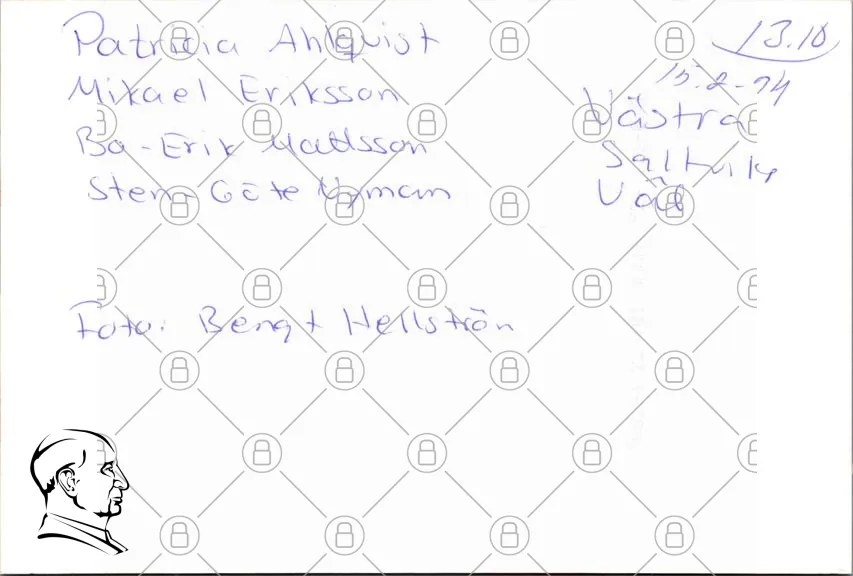 Patricia Ahlqvist
Mikael Eriksson
Bo-Erik Mattsson
Sten-Göte Nyman
13.10
15.2-94
Västra
Saltvik
Foto: Bengt Hellström